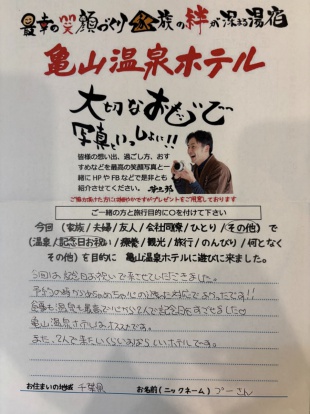 最幸の笑顔づくり 家族の絆が深まる湯宿
亀山温泉ホテル
大切なおもいで
写真といっしょに!!
皆様の想い出、過ごし方、おす
すめなどを最高の笑顔写真と一
緒に HP や FB などで是非とも
紹介させてください。
ご協力頂けた方には細やかですがプレゼントをご用意しております
ご一緒の方と旅行目的に○を付けて下さい
今回（家族／夫婦／友人／会社同僚／ひとり／その他）で
（温泉／記念日お祝い／療養／観光／旅行／のんびり／何となく
その他）を目的に 亀山温泉ホテルに遊びに来ました。
今回は記念日お祝いで来させていただきました。
予約の時からめちゃめちゃ心のこもった対応でよかったです!!
食事も温泉も最高で心から2人で記念日をすごせました♡
亀山温泉ホテルはオススメです。
また、2人で来たいくらいすばらしいホテルです。
お住まいの地域 千葉県 お名前（ニックネーム） プーさん